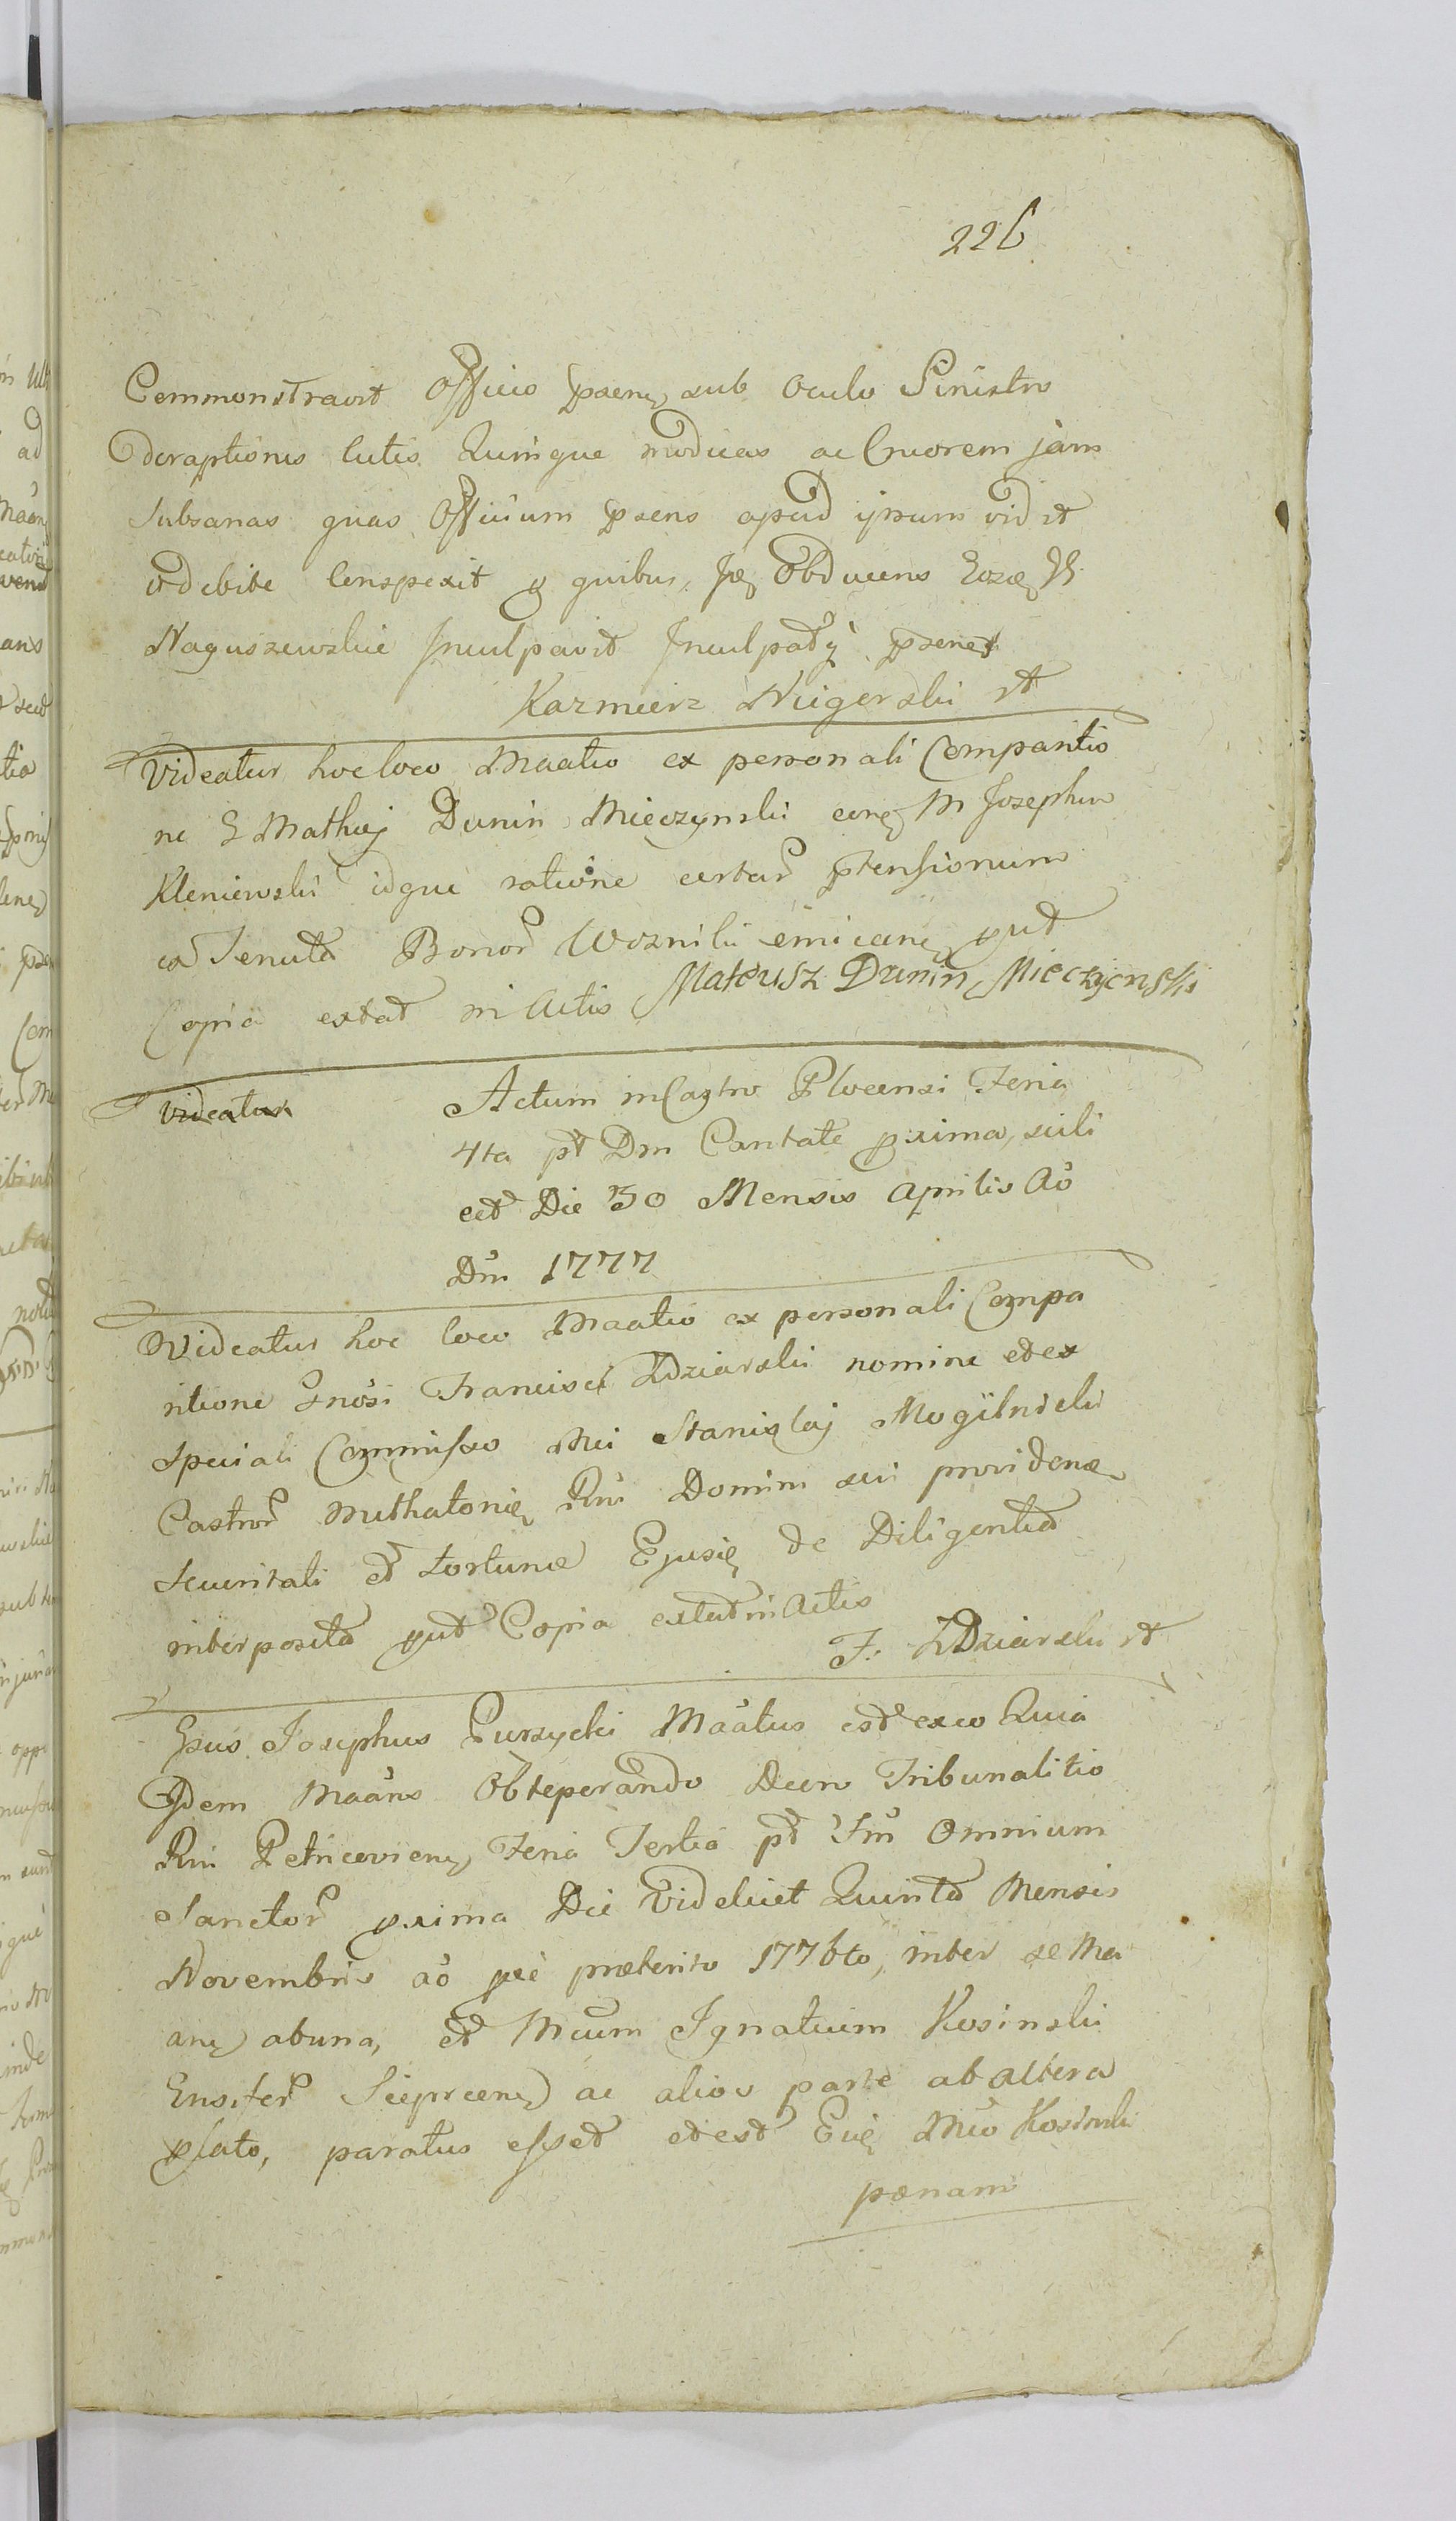 226
Commonstravit Officio psenti sub Oculo Sinistro
deraptiones Cutis Quinque modicas ac Cruorem jam
Subsanas quas Officium psens apud ipsum vidit
et debite Conspexit p quibus Ide Obducens
Naguszewskie Inculpavit Inculpatq psenet
Kazmierz Nieigerski
Videatur hoc loco Maatio ex personali Comparitio
ne G Mathiej Dunin Mieczynski con M Josephu
Kleniewski idque ratione certar ptensionum
ex Tenuta Bonor Woznilii emican put
Copia extat in Actis Mateusz Dunin Mieczyenski
Videatur Actum in Castro Plocensi Feria
4ta pt Dm Cantate pxima scili
cet Die 30 Mensis Aprilis Ao
Dni 1777
Videatur hoc loco Maatio ex personali Compa
ritione Gnosi Francisci Zdziarski nomine et ex
Speciali Commisso Mci Stanislaj Mogilnicki
Castror Rni Domini sui providen
Securitati et fortunae Ejusd de Diligentia
interposita put Copia extat in Actis
F. Zdziarski
Gsus Josephus Gurzycki Maatus est ex eo Quia
Idem Maans Obteperando Decro Tribunalitio
Rni Petricovien Feria Tertia pt Fm Omnium
Sanctor pxima Die Videlicet Quinta Mensis
Novembris ao pe praeterito 1776to, inter se Ma
an ab una, et Mcum Ignatium Kosinski
Ensifer Sieprcen ac alios parte ab altera
plato, paratus esset et est Eid Mco Kosinski
paenam